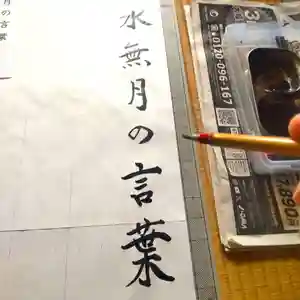 水無月の言葉
月の言葉
0120-096-167
7,890